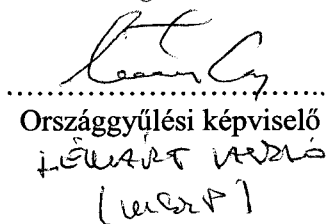 Országgyűlési képviselő
LÉNÁRT LÁSZLÓ
(MSZP)